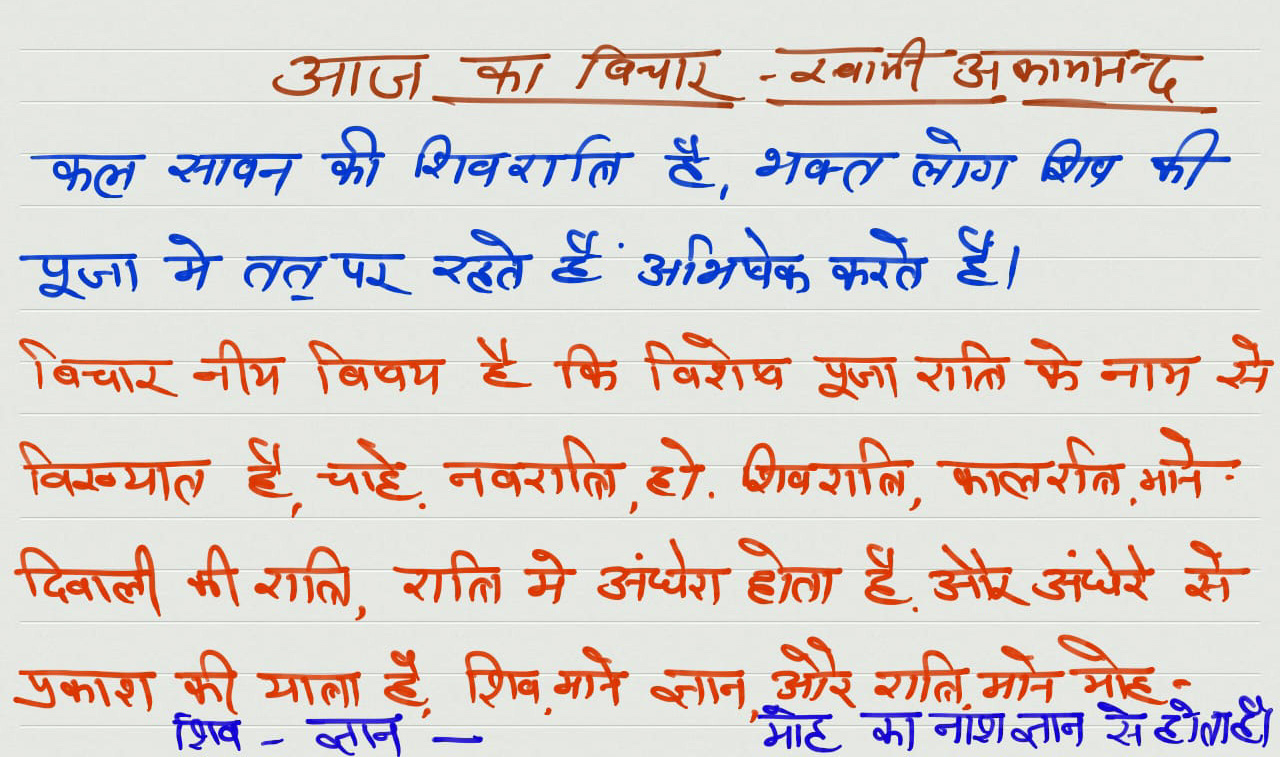 आज का विचार - स्वामी अकामानन्द
कल सावन की शिवरात्रि है, भक्त लोग शिव की
पूजा मे तत् पर रहते हैं अभिषेक करते है।
विचार नीय विषय है कि विशेष पूजा रात्रि के नाम से
विख्यात है, चाहे, नवरात्रि, हो. शिवरात्रि, कालरात्रि, माने
दिवाली की रात्रि, रात्रि मे अंधेरा होता है, और अंधेरे से
प्रकाश की यात्रा है, शिव, माने ज्ञान, और रात्रि, माने मोह -
शिव - ज्ञान — मोह का नाश ज्ञान से होता है।